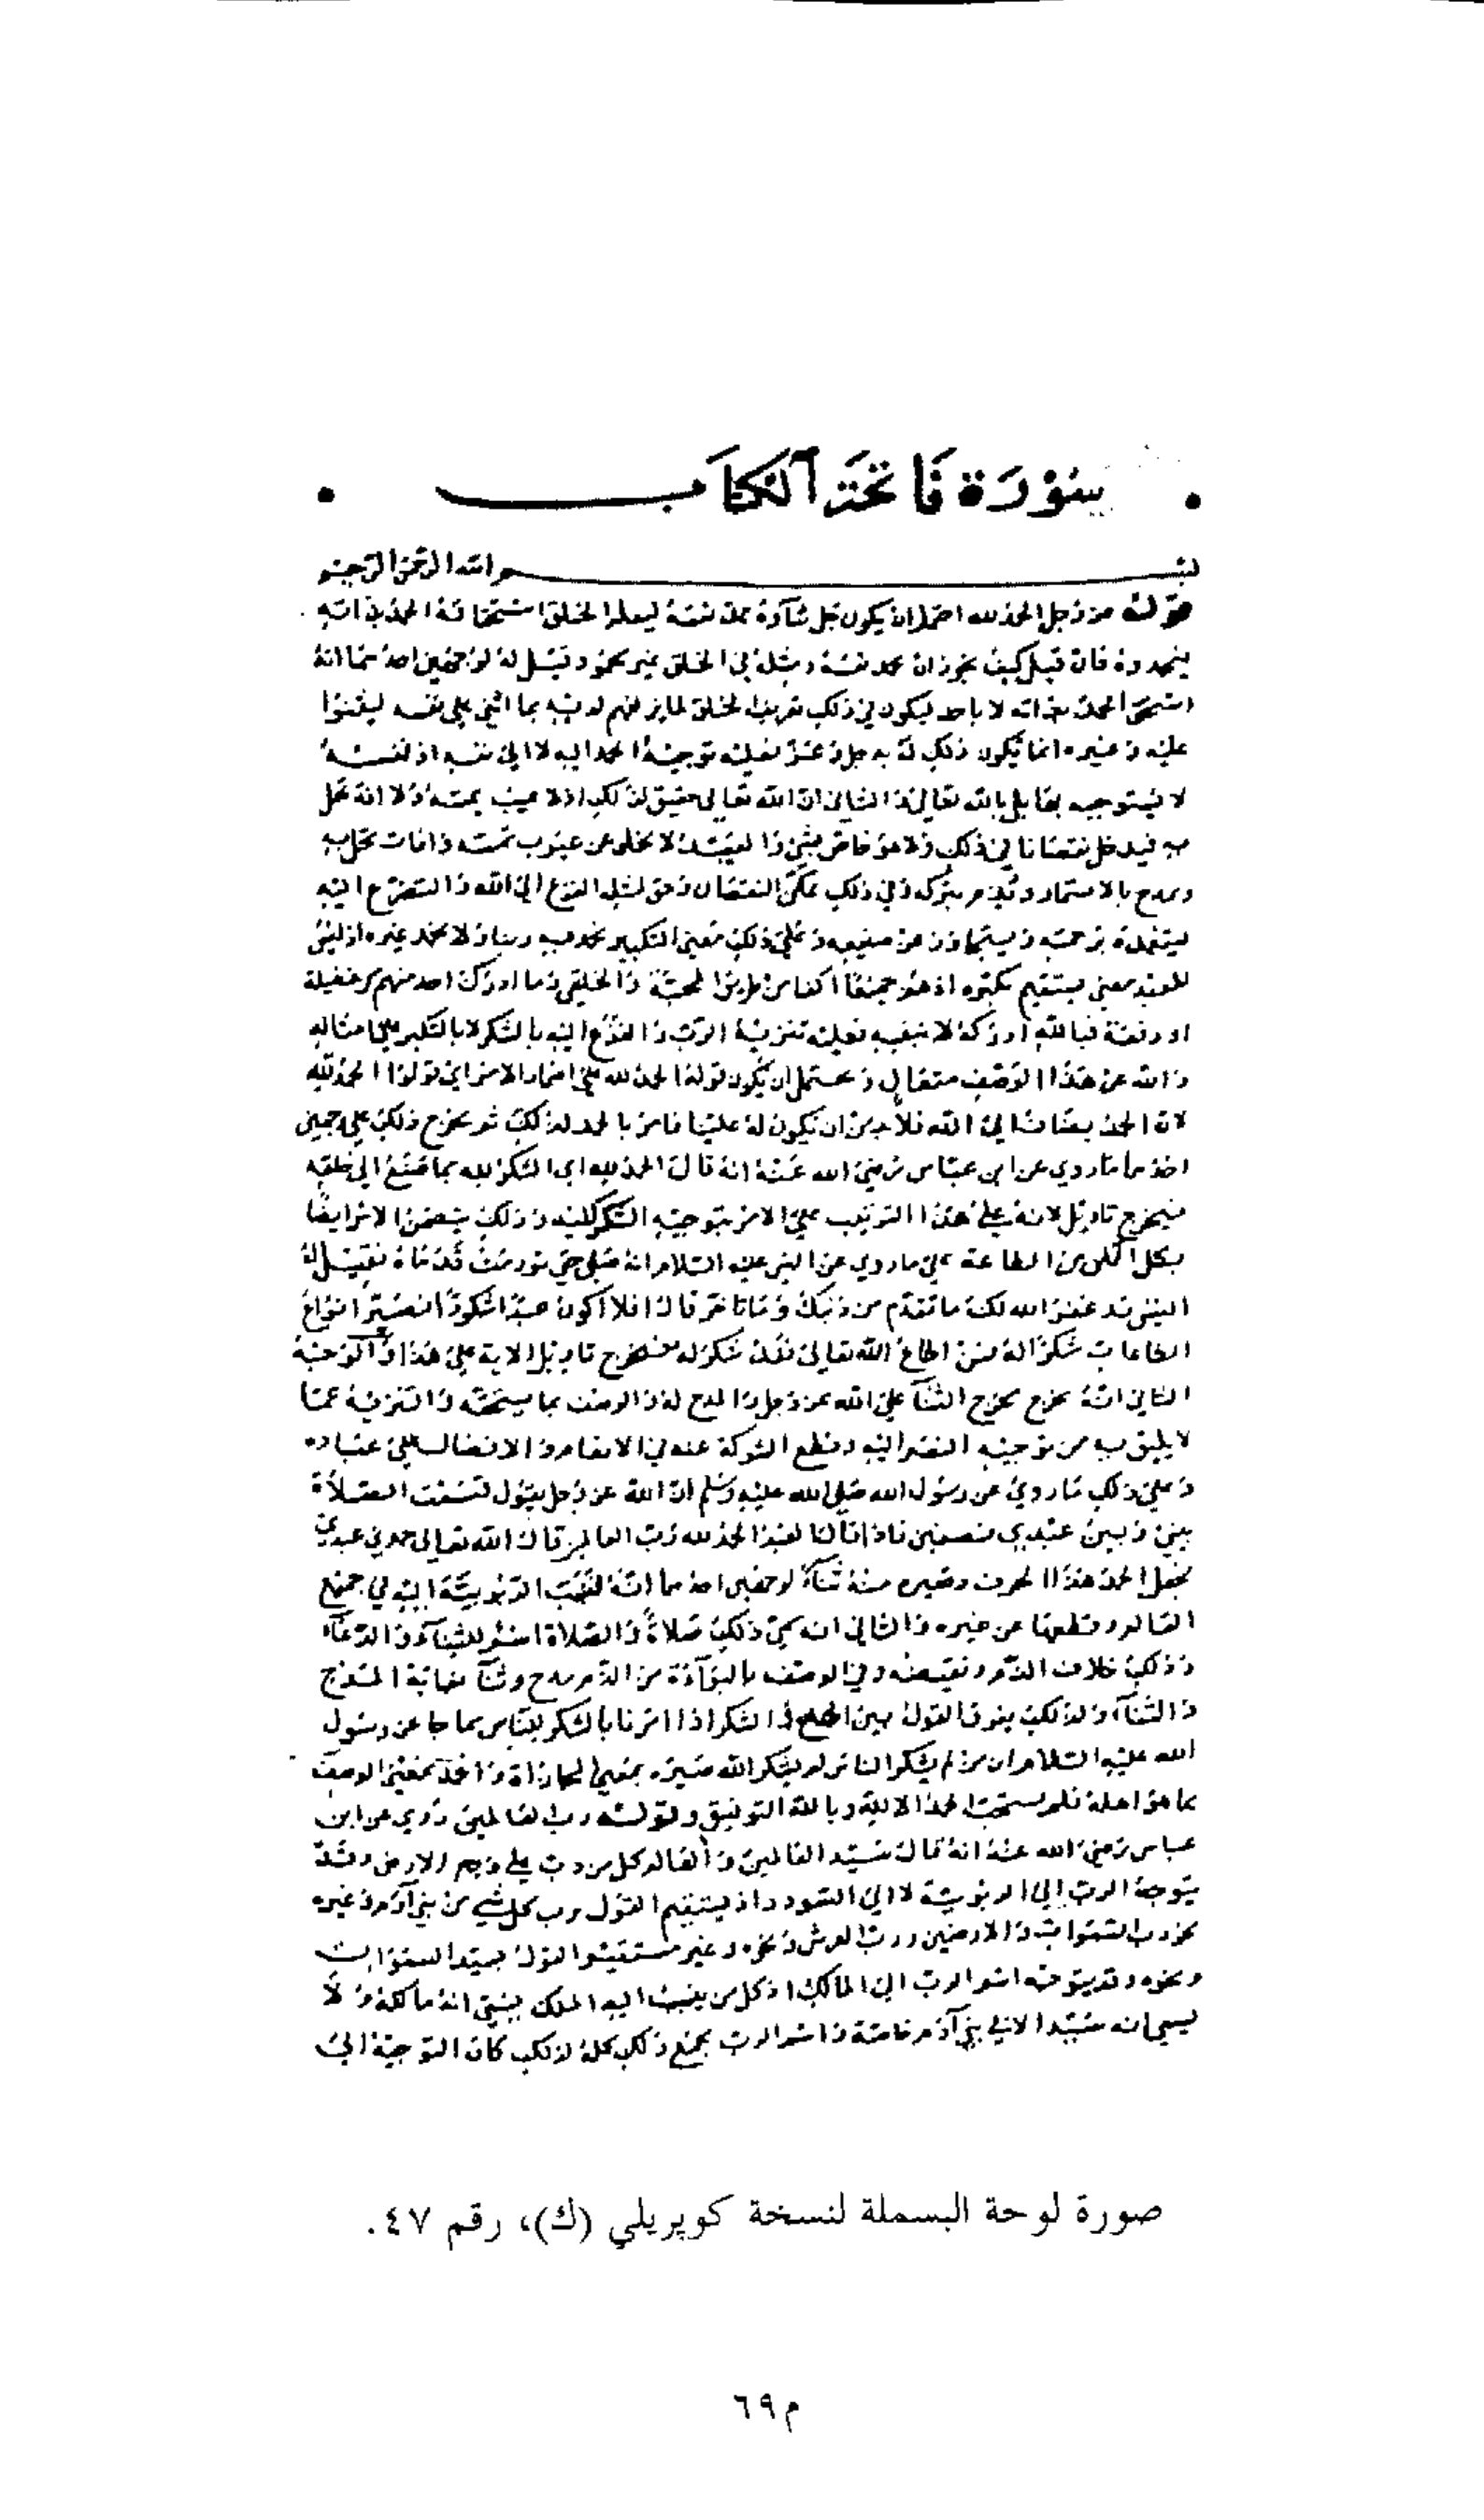 سورة فاتحة الكتاب
بسم الله الرحمن الرحيم
قوله عز وجل الحمد لله احتمل ان يكون جل ثناؤه حمد نفسه ليعلم الخلق استحقاقه الحمد بذاته
فيحمدوه فان قيل كيف يجوز ان يحمد نفسه ومثله في الخلق غير محمود قيل له لوجهين احدهما انه
استحق الحمد بذاته لا باحد فيكون في ذلك تعريف الخلق لما يزلفهم لديه بما اثنى على نفسه ليثنوا
عليه وغيره انما يكون ذلك له به جل وعز فعليه توجيه الحمد اليه لا الى نفسه اذ نفسه
لا تستوجبه بها بل بالله تعالى والثاني ان الله تعالى حقيق لذلك اذ لا عيب يمسه ولا افة تحل
به فيدخل نقصانا في ذلك ولا هو خاص بشي والعبد لا يخلو عن عيوب تمسه وافات تحل به
ويمدح بالائتمار ويذم بتركه وفي ذلك تمكن النقصان وحق لمثله الفزع الى الله والتضرع اليه
ليتغمده برحمته ويتجاوز عن صنيعه وعلى ذلك معنى التكبير نحمد به ربنا ولا نحمد غيره اذ ليس
للعبد معنى يستقيم تكبره اذ هم جميعا اكفا من طريق المحبة والخلقة وما ادرك احد منهم من فضيلة
او رفعة فبالله ادركه لا بنفسه فعليه تنزيه الرب والفزع اليه بالشكر لا بالتكبر على امثاله
والله عن هذا الوصف متعال ويحتمل ان يكون قوله الحمد لله على اضمار الامر اي قولوا الحمد لله
لان الحمد يضاف الى الله فلا بد من ان يكون له علينا فامر بالحمد لذلك ثم يخرج ذلك على وجهين
احدهما ما روي عن ابن عباس رضي الله عنه انه قال الحمد لله اي الشكر لله بما صنع الى خلقه
فيخرج تاويل الاية على هذا الترتيب على الامر بتوجيه الشكر اليه وذلك يتضمن الامر ايضا
بكل الممكن من الطاعة على ما روي عن النبي عليه السلام انه صلى حتى تورمت قدماه فقيل له
اليس قد غفر الله لك ما تقدم من ذنبك وما تاخر قال افلا اكون عبدا شكورا فصير انواع
الطاعات شكرا له فمن اطاع الله تعالى فقد شكر له فيخرج تاويل الاية على هذا والوجه
الثاني انه يخرج مخرج الثنا على الله عز وجل والمدح له والوصف بما يستحقه والتنزيه عما
لا يليق به من توجيه النعم اليه وقطع الشركة عنه في الانعام والافضال على عباده
وعلى ذلك ما روي عن رسول الله صلى الله عليه وسلم ان الله عز وجل يقول قسمت الصلاة
بيني وبين عبدي نصفين فاذا قال العبد الحمد لله رب العالمين قال الله تعالى حمدني عبدي
فجعل الحمد هذا الحرف وصير منه ثناء لوجهين احدهما انه نسب الربوبية اليه في جميع
العالم وقطعها عن غيره والثاني انه سمى ذلك صلاة والصلاة اسم للثناء والدعاء
وذلك خلاف الذم ونقيضه وفي الوصف بالبراءة من الذم مدح وثنا بغاية المدح
والثناء ولذلك يفرق القول بين الحمد والشكر اذا امرنا بالشكر للناس بما جا عن رسول
الله عليه السلام ان من لم يشكر الناس لم يشكر الله صيره بمعنى المجازاة والحمد بمعنى الوصف
بما هو اهله فلم يستحب الحمد الا لله وبالله التوفيق وقوله رب العالمين روي عن ابن
عباس رضي الله عنه انه قال سيد العالمين والعالم كل من دب على وجه الارض وقد
يتوجه الرب الى الربوبية لا الى السودد اذ يستقيم القول برب كل شي من بني آدم وغيره
نحو رب السموات والارضين ورب العرش ونحوه وغير مستقيم القول بسيد السموات
ونحوه وقد يتوجه اسم الرب الى المالك اذ كل من ينسب اليه الملك يسمى انه مالكه ولا
يسمى انه سيد الا في بني آدم خاصة واسم الرب يجمع ذلك كله لذلك كان التوجيه الى
صورة لوحة البسملة لنسخة كوبريلي (ك)، رقم ٤٧.
م٦٩